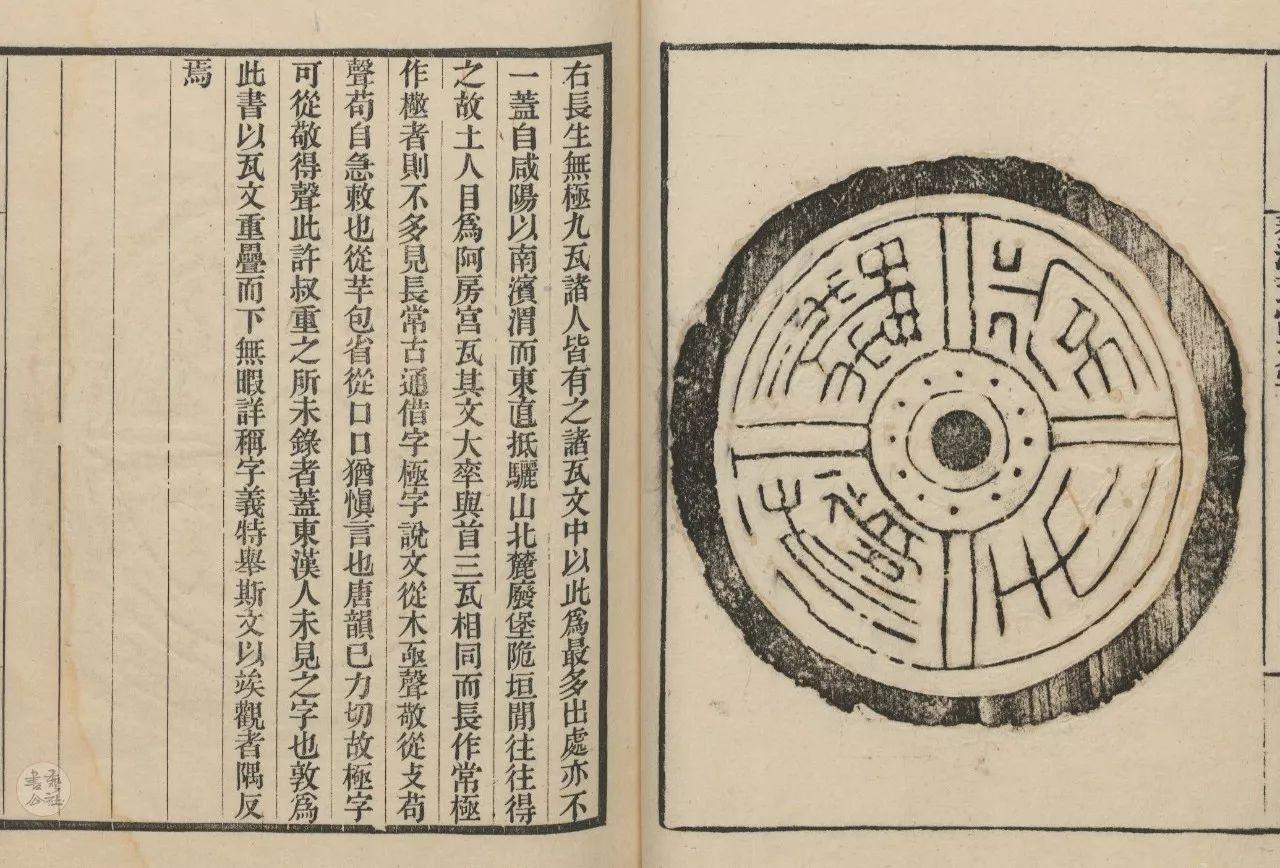 右長生無極九瓦諸人皆有之諸瓦文中以此爲最多出處亦不
一蓋自咸陽以南濱渭而東直抵驪山北麓廢堡陒垣閒往往得
之故土人目爲阿房宫瓦其文大率與首三瓦相同而長作常極
作者則不多見長常古通借字極字說文從木亟聲敬從攴茍
聲茍自急敕也從芉包省從口口猶愼言也唐韻已力切故極字
可從敬得聲此許叔重之所未錄者蓋東漢人未見之字也敦爲
此書以瓦文重疊而下無暇詳稱字義特舉斯文以竢觀者隅反
焉